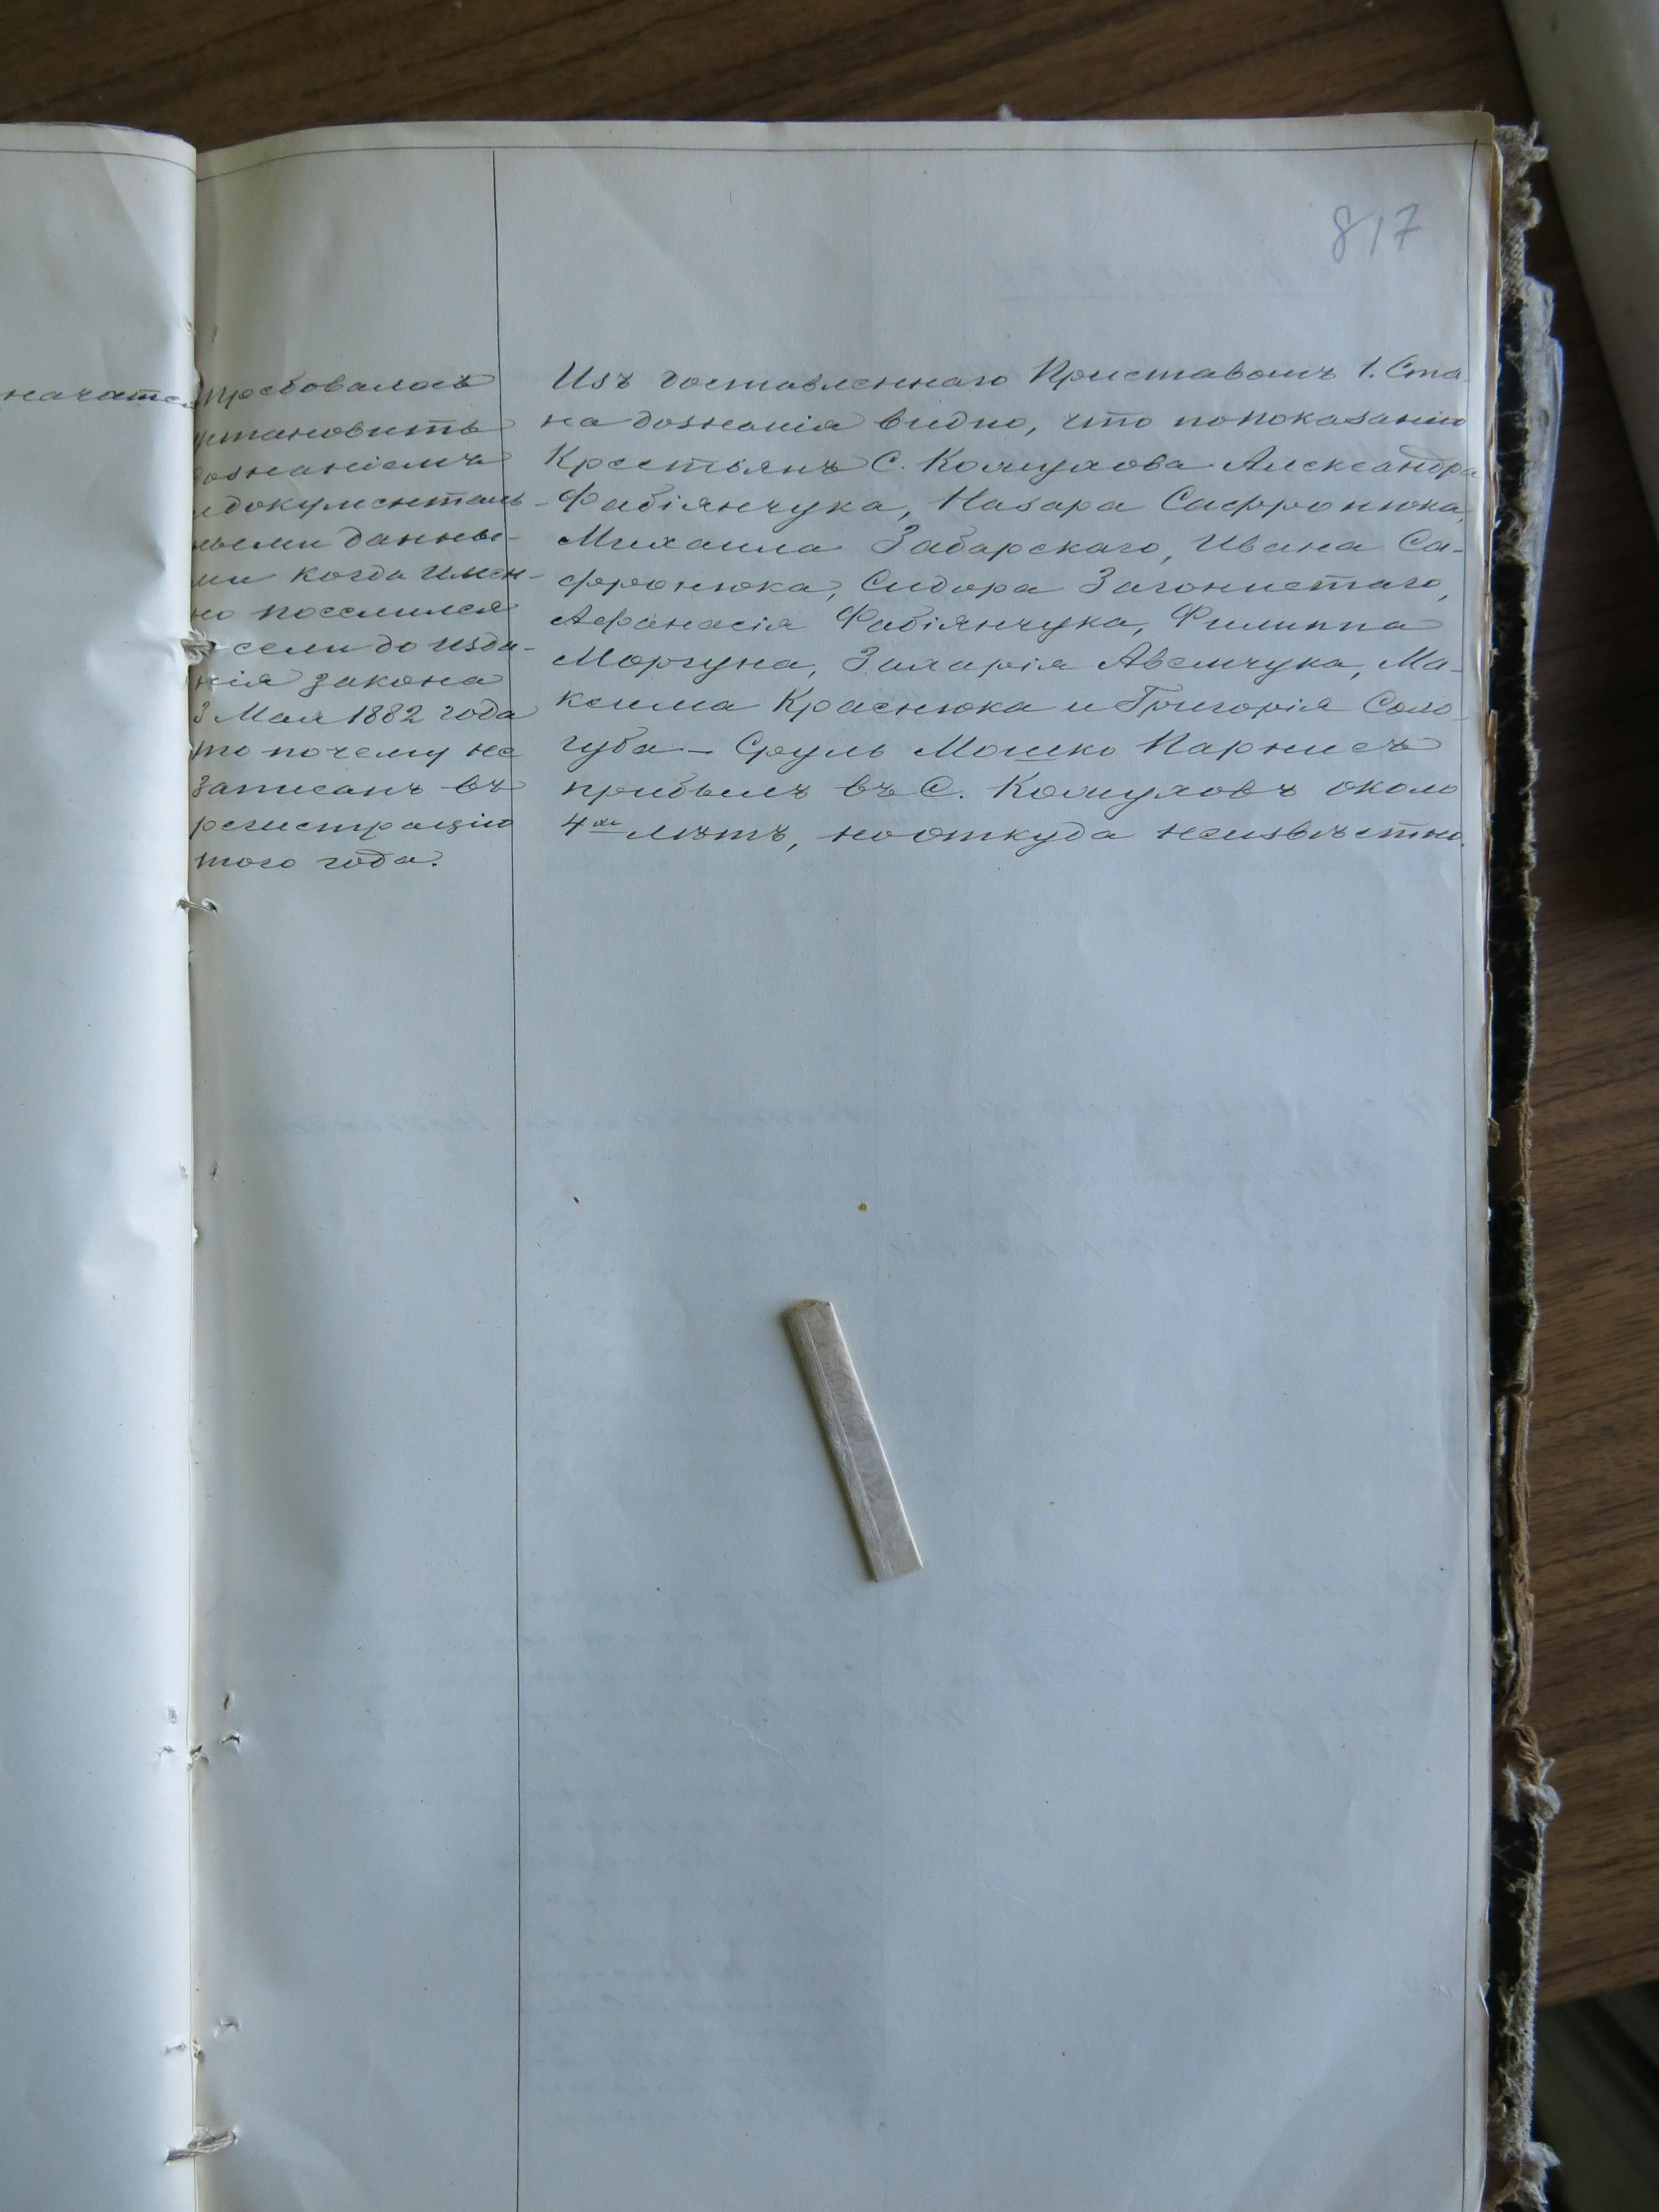 817
начато
Требовалось
установить
дознаніемъ
и документаль-
ными данны-
ми когда имен-
но поселился
селидо изда-
нія закона
3 Мая 1882 года
то почему не
записанъ въ
регистрацію
того года.
Изъ доставленнаго Приставомъ 1. Ста-
на дознанія видно, что попоказанію
Крестьянъ С. Кожухова Александра
Фабіянчука, Назара Сафронюка,
Михаила Забарскаго, Ивана Са-
фронюка, Сидора Загонистаго,
Афанасія Фабіянчука, Филиппа
Моргуна, Захарія Авсмчука, Ма-
ксима Краснюка и Григорія Соло-
губа – Сруль Мошко Парнисъ
прибылъ въ С. Кожуховъ около
4хъ лѣтъ, но откуда неизвѣстно.